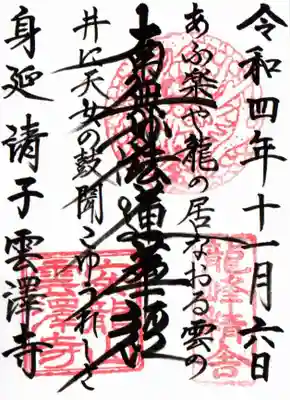 令和四年十一月六日
あふ楽や龍の居なおる雲の
南無妙法蓮華経
井に天女の鼓聞こゆうれしさ
身延 請子 雲澤寺
龍淫精舎
雲澤寺